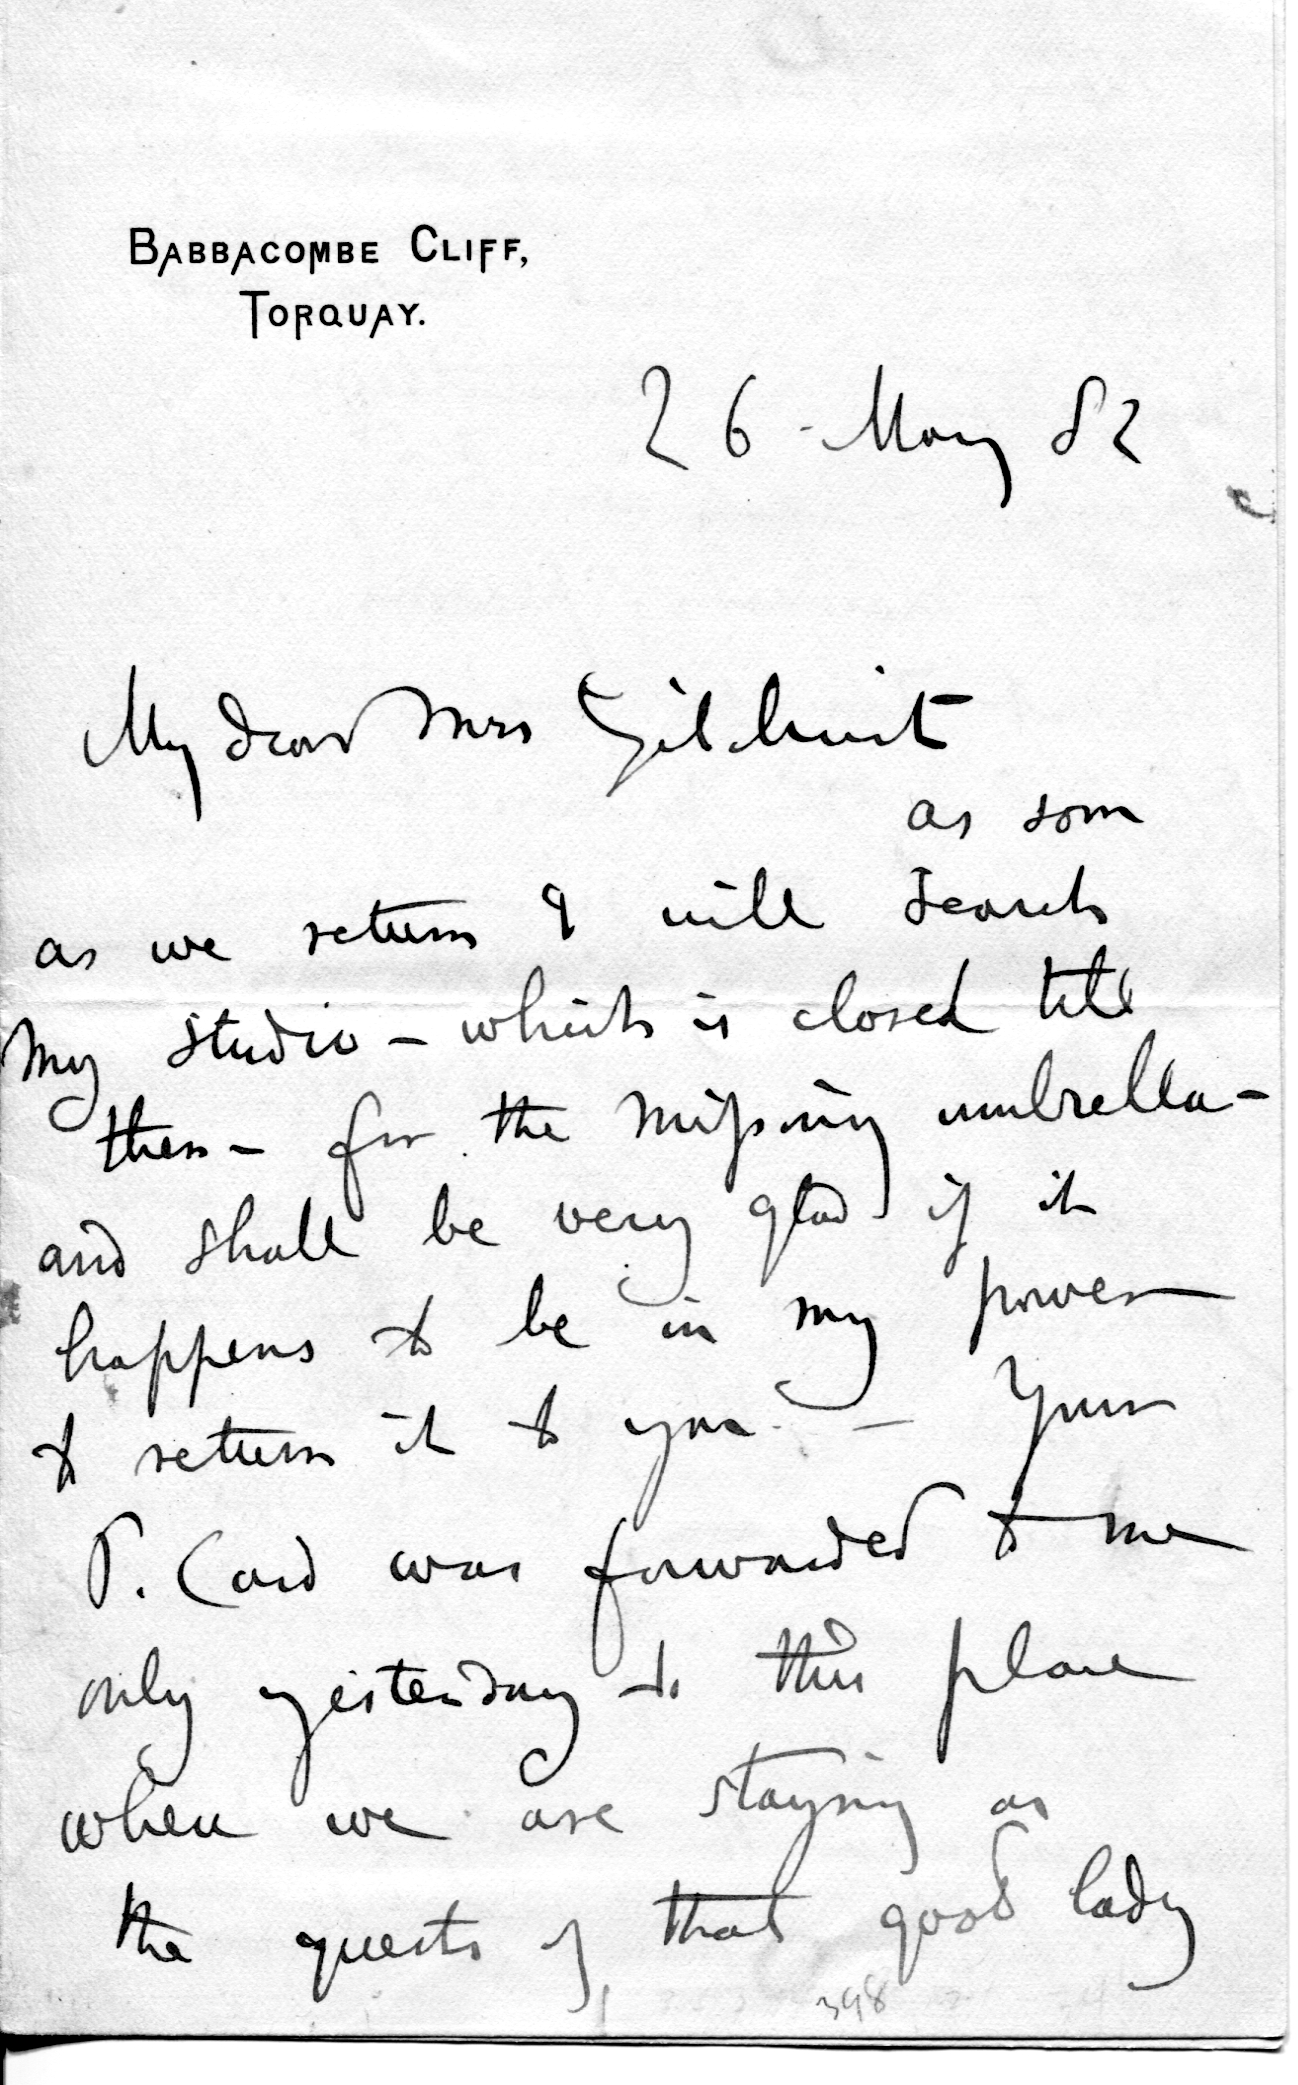 BABBACOMBE CLIFF,
TORQUAY.
26 - May 82
My dear Mrs Gilchrist
as soon
as we return I will search
my studio – which is closed till
then – for the missing umbrella –
and shall be very glad if it
happens to be in my power
to return it to you. – Your
P. Card was forwarded to me
only yesterday to this place
where we are staying as
the guests of that good lady
398